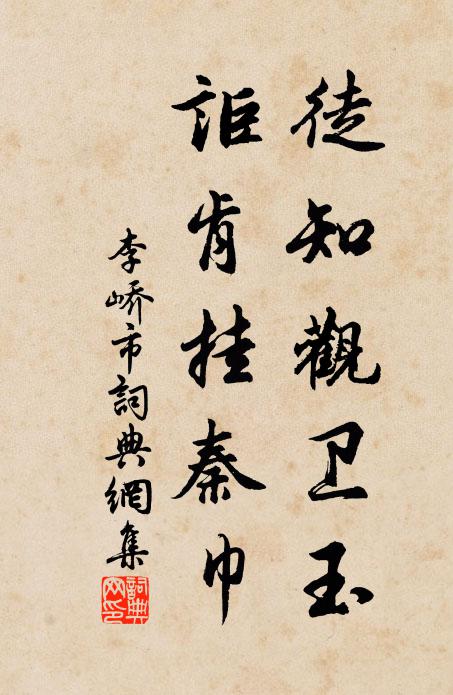 徒知觀卫玉
詎肯挂秦巾
李嶠市詞典網集
詞典網印